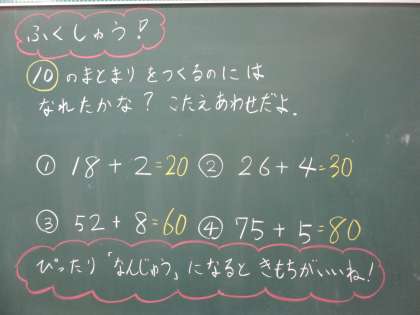 ふくしゅう!
10のまとまりをつくるのには
なれたかな? こたえあわせだよ.
① 18+2=20 ② 26+4=30
③ 52+8=60 ④ 75+5=80
ぴったり「なんじゅう」になるときもちがいいね!